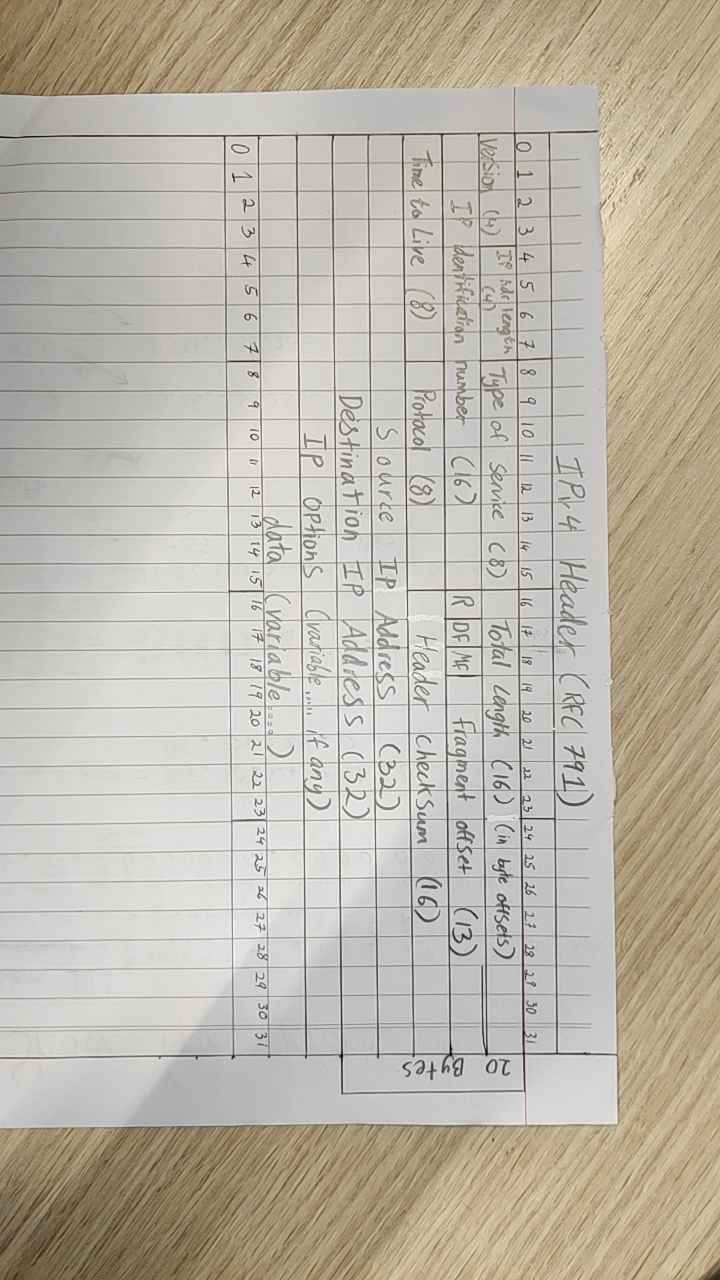 IPv4 Header (RFC 791)
0 1 2 3 4 5 6 7 8 9 10 11 12 13 14 15 16 17 18 19 20 21 22 23 24 25 26 27 28 29 30 31
Version (4) IP hdr length (4) Type of Service (8) Total Length (16) (in byte offsets)
IP identification number (16) R DF MF fragment offset (13)
Time to Live (8) Protocol (8) Header checksum (16)
Source IP Address (32)
Destination IP Address (32)
IP options (variable..... if any)
data (variable....)
0 1 2 3 4 5 6 7 8 9 10 11 12 13 14 15 16 17 18 19 20 21 22 23 24 25 26 27 28 29 30 31
20 Bytes